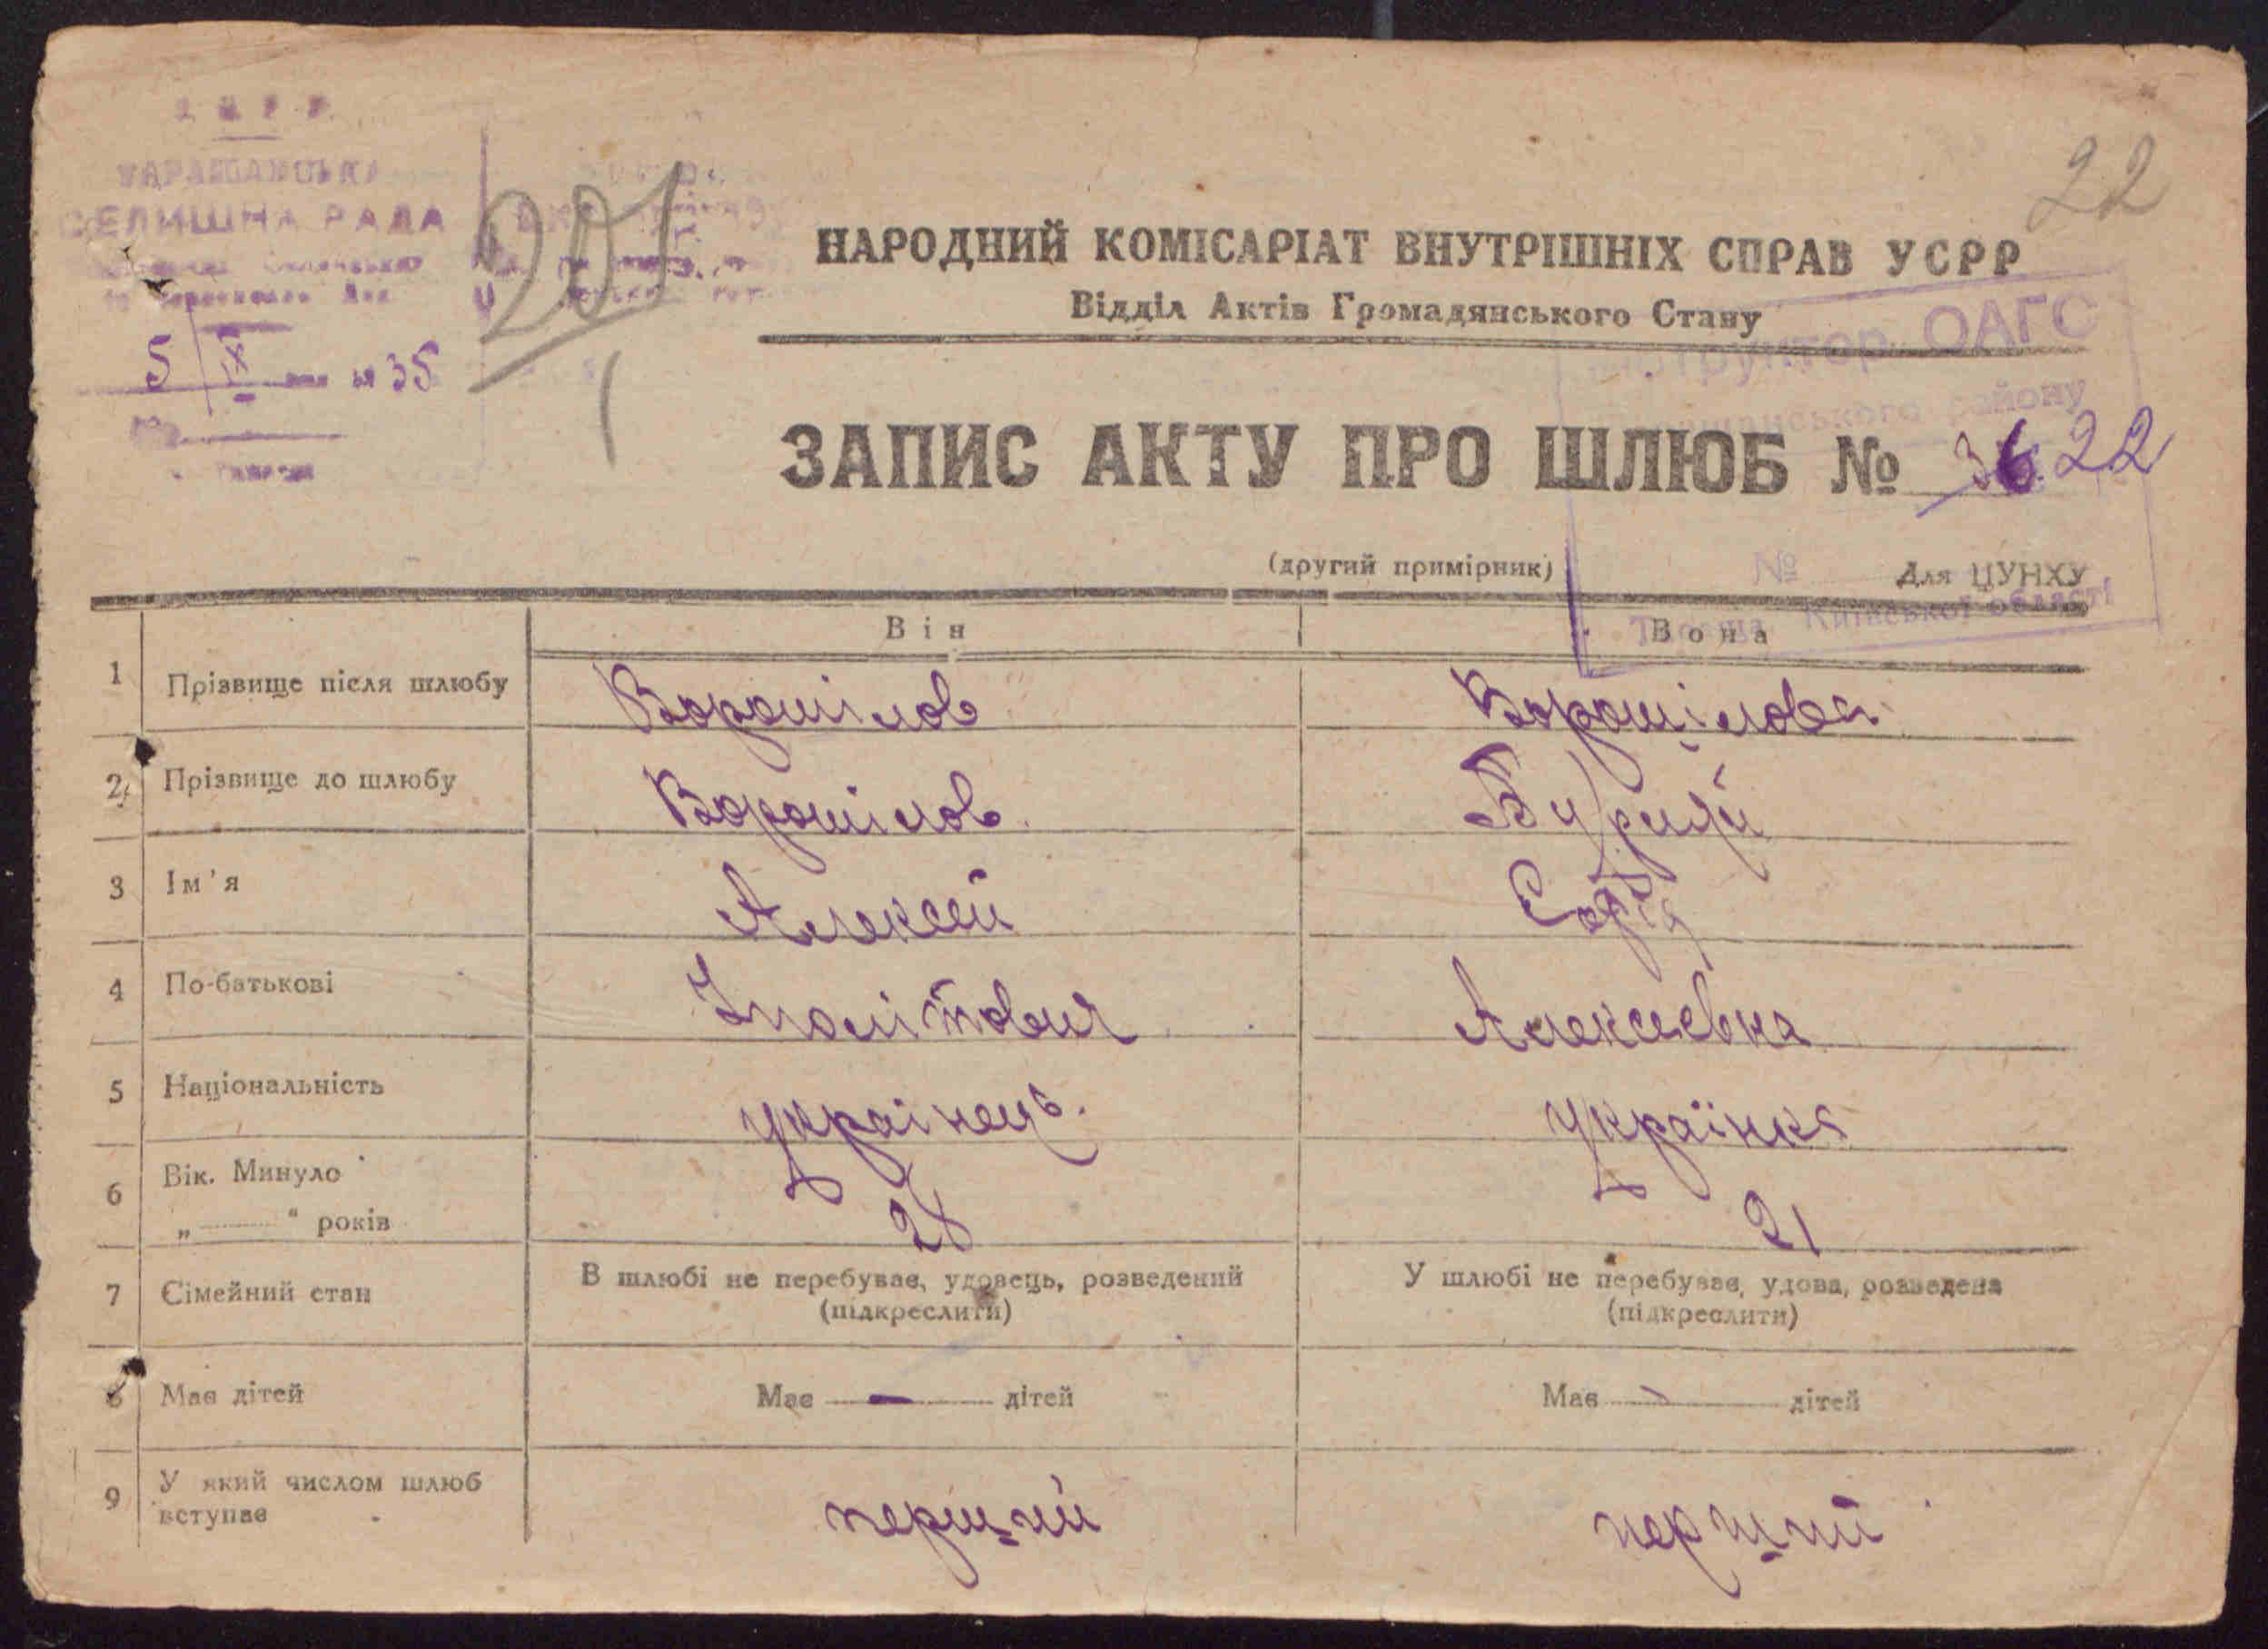 ТАРАЩАНСЬКА
СЕЛИШНА РАДА
5/IX 1935
№
201
1
22
НАРОДНИЙ КОМІСАРІАТ ВНУТРІШНІХ СПРАВ УСРР
Відділ Актів Громадянського Стану
Інструктор ОАГС
Таращанського району
ЗАПИС АКТУ ПРО ШЛЮБ № 36 22
(другий примірник)
№ Для ЦУНХУ
Тараща Київської області
Він Вона
1 Прізвище після шлюбу Ворошілов Ворошілова
2 Прізвище до шлюбу Ворошілов
3 Ім'я Алексей Софія
4 По-батькові Іполітович Алексеевна
5 Національність украінець. українка
6 Вік. Минуло
„ “ років 28 21
7 Сімейний стан В шлюбі не перебуває, удовець, розведений У шлюбі не перебуває, удова, розведена
(підкреслити) (підкреслити)
8 Має дітей Має — дітей Має — дітей
9 У який числом шлюб
вступає перший перший